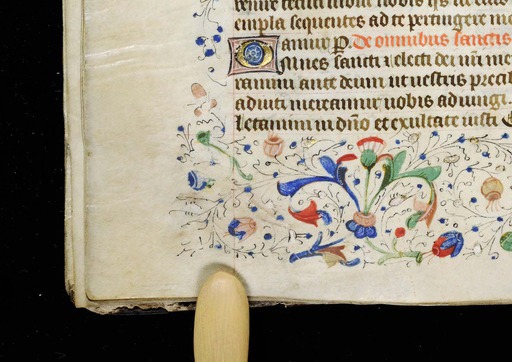 empla sequentes ad te pertingere me
amur p. De omnibus sanctis
Omnes sancti et electi dei nri me
ramini ante deum ut vestris precib
adiuti mereamur vobis adiungi.
Letamini in dno et exultate iusti